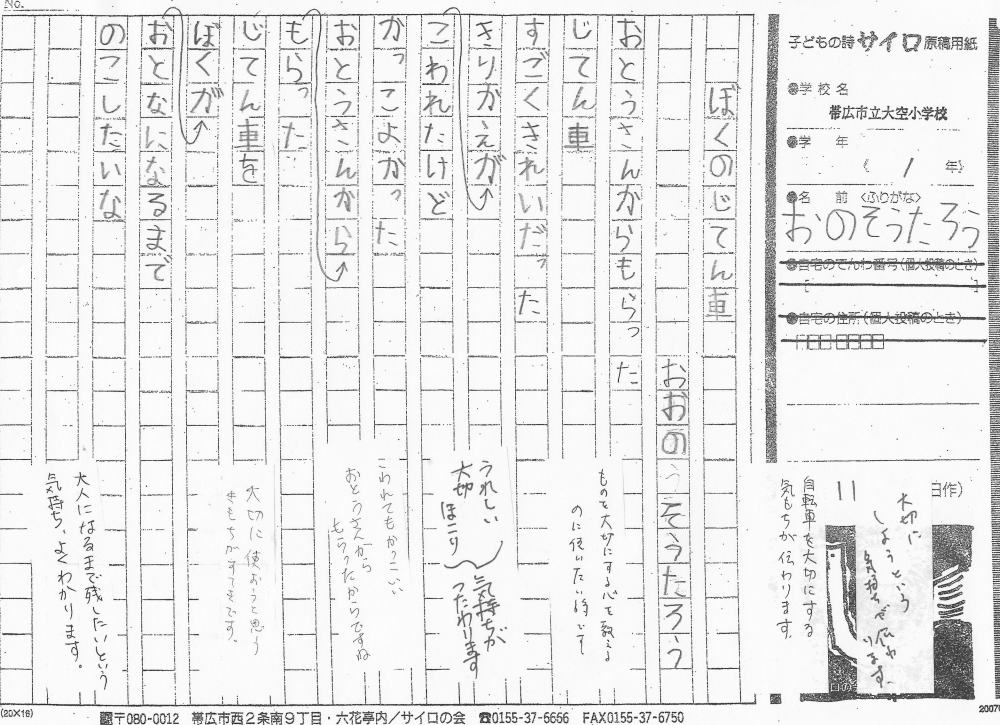 No.
子どもの詩 サイロ 原稿用紙
●学校名
帯広市立大空小学校
●学 年
( 1 年)
●名 前 〈ふりがな〉
おのそうたろう
●自宅のでんわ番号(個人投稿のとき)
●自宅の住所(個人投稿のとき)
ぼくのじてん車
おおのうそうたろう
おとうさんからもらった
じてん車
すごくきれいだった
きりかえが
こわれたけど
かっこよかった
おとうさんから
もらった
じてん車を
ぼくが
おとなになるまで
のこしたいな
11
日作)
大切に
しようという
気持ちが伝わ
ります。
自転車を大切にする
気もちが伝わります。
ものを大切にする心を教える
のに使いたい詩です
うれしい
大切
ほこり
気持ちが
つたわります
こわれてもかっこいい
おとうさんから
もらったからですね
大切に使おうと思う
きもちがすてきです。
大人になるまで残したいという
気持ち、よくわかります。
(20×16)
〒080-0012 帯広市西2条南9丁目・六花亭内/サイロの会 ☎0155-37-6666 FAX0155-37-6750
2007